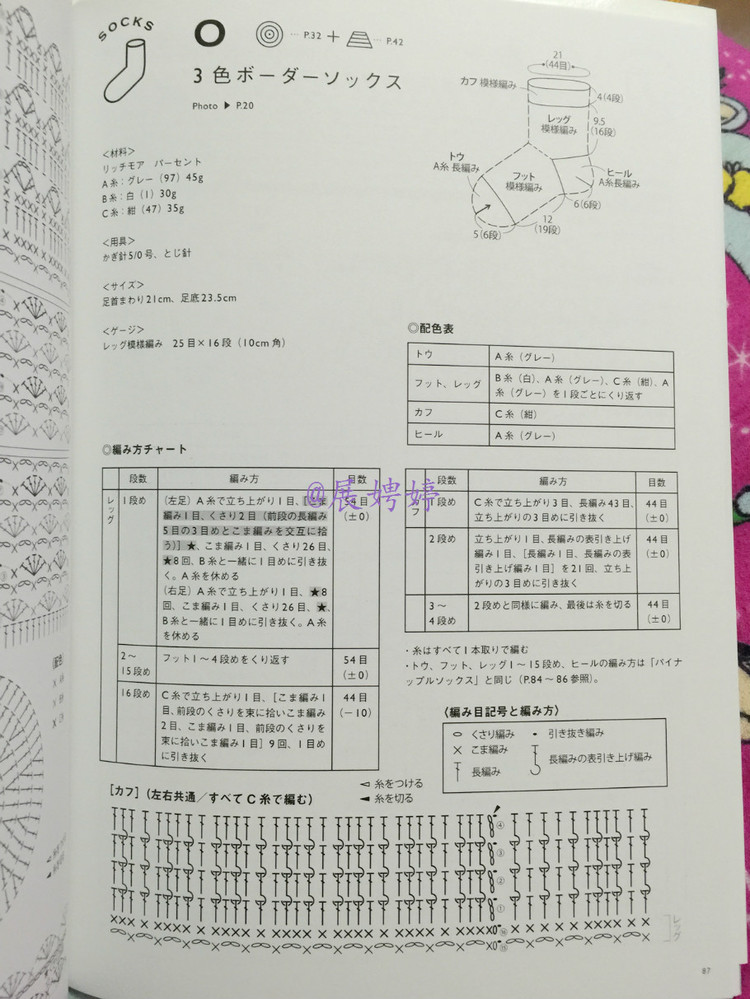 SOCKS
O
… P.32 + … P.42
3色ボーダーソックス
Photo ▶ P.20
<材料>
リッチモア パーセント
A糸:グレー(97)45g
B糸:白(1)30g
C糸:紺(47)35g
<用具>
かぎ針5/0号、とじ針
<サイズ>
足首まわり21cm、足底23.5cm
<ゲージ>
レッグ模様編み 25目×16段(10cm角)
21
(44目)
カフ 模様編み
4(4段)
9.5
(16段)
レッグ
模様編み
トウ
A糸 長編み
フット
模様編み
ヒール
A糸長編み
6(6段)
12
(19段)
5(6段)
◎配色表
トウ
A糸(グレー)
フット、レッグ
B糸(白)、A糸(グレー)、C糸(紺)、A
糸(グレー)を1段ごとにくり返す
カフ
C糸(紺)
ヒール
A糸(グレー)
◎編み方チャート
段数 編み方 目数
レッグ
1段め
(左足)A糸で立ち上がり1目、[こま
編み1目、くさり2目(前段の長編み
5目の3目めとこま編みを交互に拾
う)]★、こま編み1目、くさり26目、
★8回、B糸と一緒に1目めに引き抜
く。A糸を休める
(右足)A糸で立ち上がり1目、★8
回、こま編み1目、くさり26目、★、
B糸と一緒に1目めに引き抜く。A糸
を休める
54目
(±0)
2〜
15段め
フット1〜4段めをくり返す
54目
(±0)
16段め
C糸で立ち上がり1目、[こま編み1
目、前段のくさりを束に拾いこま編み
2目、こま編み1目、前段のくさりを
束に拾いこま編み1目]9回、1目め
に引き抜く
44目
(−10)
段数 編み方 目数
カフ
1段め
C糸で立ち上がり3目、長編み43目、
立ち上がりの3目めに引き抜く
44目
(±0)
2段め
立ち上がり1目、長編みの表引き上げ
編み1目、[長編み1目、長編みの表
引き上げ編み1目]を21回、立ち上
がりの3目めに引き抜く
44目
(±0)
3〜
4段め
2段めと同様に編み、最後は糸を切る
44目
(±0)
@展娉婷
・糸はすべて1本取りで編む
・トウ、フット、レッグ1〜15段め、ヒールの編み方は「パイナ
ップルソックス」と同じ(P.84〜86参照)。
〈編み目記号と編み方〉
くさり編み
引き抜き編み
こま編み
長編みの表引き上げ編み
長編み
[カフ](左右共通/すべてC糸で編む)
糸をつける
糸を切る
④
③
②
①
⑯
⑮
レッグ
87